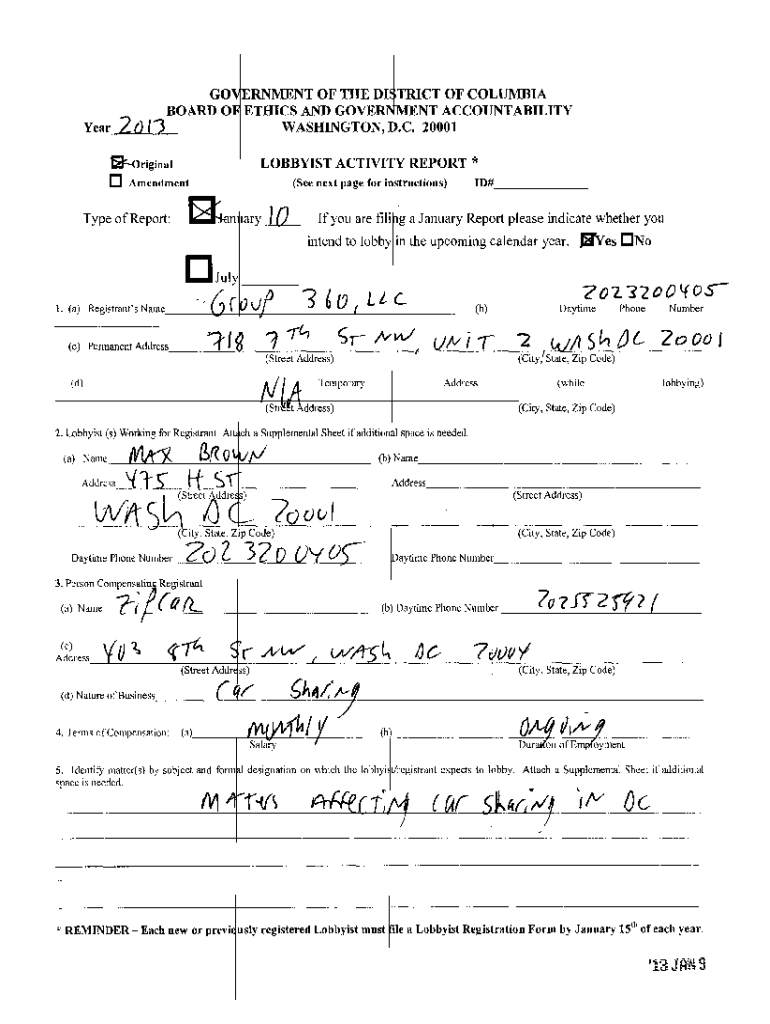 GOVERNMENT OF THE DISTRICT OF COLUMBIA
BOARD OF ETHICS AND GOVERNMENT ACCOUNTABILITY
Year 2013 WASHINGTON, D.C. 20001
Original LOBBYIST ACTIVITY REPORT *
Amendment (See next page for instructions) ID#
Type of Report: January 10 If you are filing a January Report please indicate whether you
intend to lobby in the upcoming calendar year. Yes No
July
2023200405
1. (a) Registrant's Name Group 360, LLC (b) Daytime Phone Number
(c) Permanent Address 718 7Th St NW, UNiT 2 WASh DC 20001
(Street Address) (City, State, Zip Code)
(d) N/A Temporary Address (while lobbying)
(Street Address) (City, State, Zip Code)
2. Lobbyist (s) Working for Registrant. Attach a Supplemental Sheet if additional space is needed.
(a) Name MAX BROWN (b) Name
Address 475 H ST Address
(Street Address) (Street Address)
WASh DC 20001
(City, State, Zip Code) (City, State, Zip Code)
Daytime Phone Number 202 320 0405 Daytime Phone Number
3. Person Compensating Registrant
(a) Name ZipCar (b) Daytime Phone Number 2025525921
(c)
Address 403 8Th St NW, WASh DC 20004
(Street Address) (City, State, Zip Code)
(d) Nature of Business Car Sharing
4. Terms of Compensation: (a) monthly (b) ongoing
Salary Duration of Employment
5. Identify matter(s) by subject and formal designation on which the lobbyist/registrant expects to lobby. Attach a Supplemental Sheet if additional
space is needed.
MATTers AffecTiNg Car Sharing iN DC
* REMINDER – Each new or previously registered Lobbyist must file a Lobbyist Registration Form by January 15th of each year.
'13 JAN 9